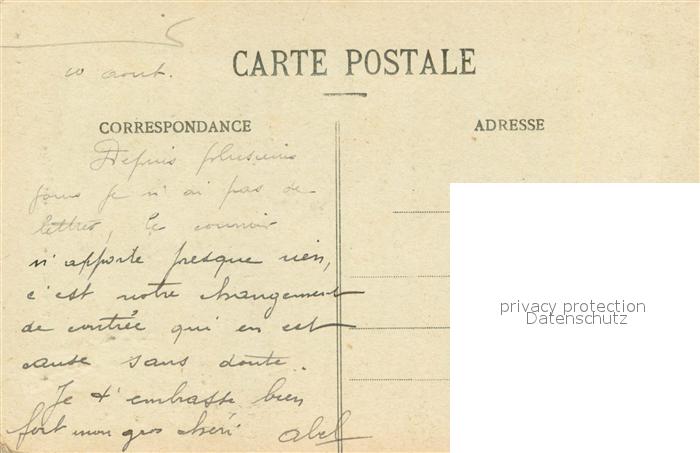 10 aout.
CARTE POSTALE
CORRESPONDANCE
ADRESSE
Depuis plusieurs
jours je n'ai pas de
lettres, le courrier
n'apporte presque rien,
c'est notre changement
de contrée qui en est
cause sans doute.
Je t'embrasse bien
fort mon gros chéri
Abel
privacy protection
Datenschutz